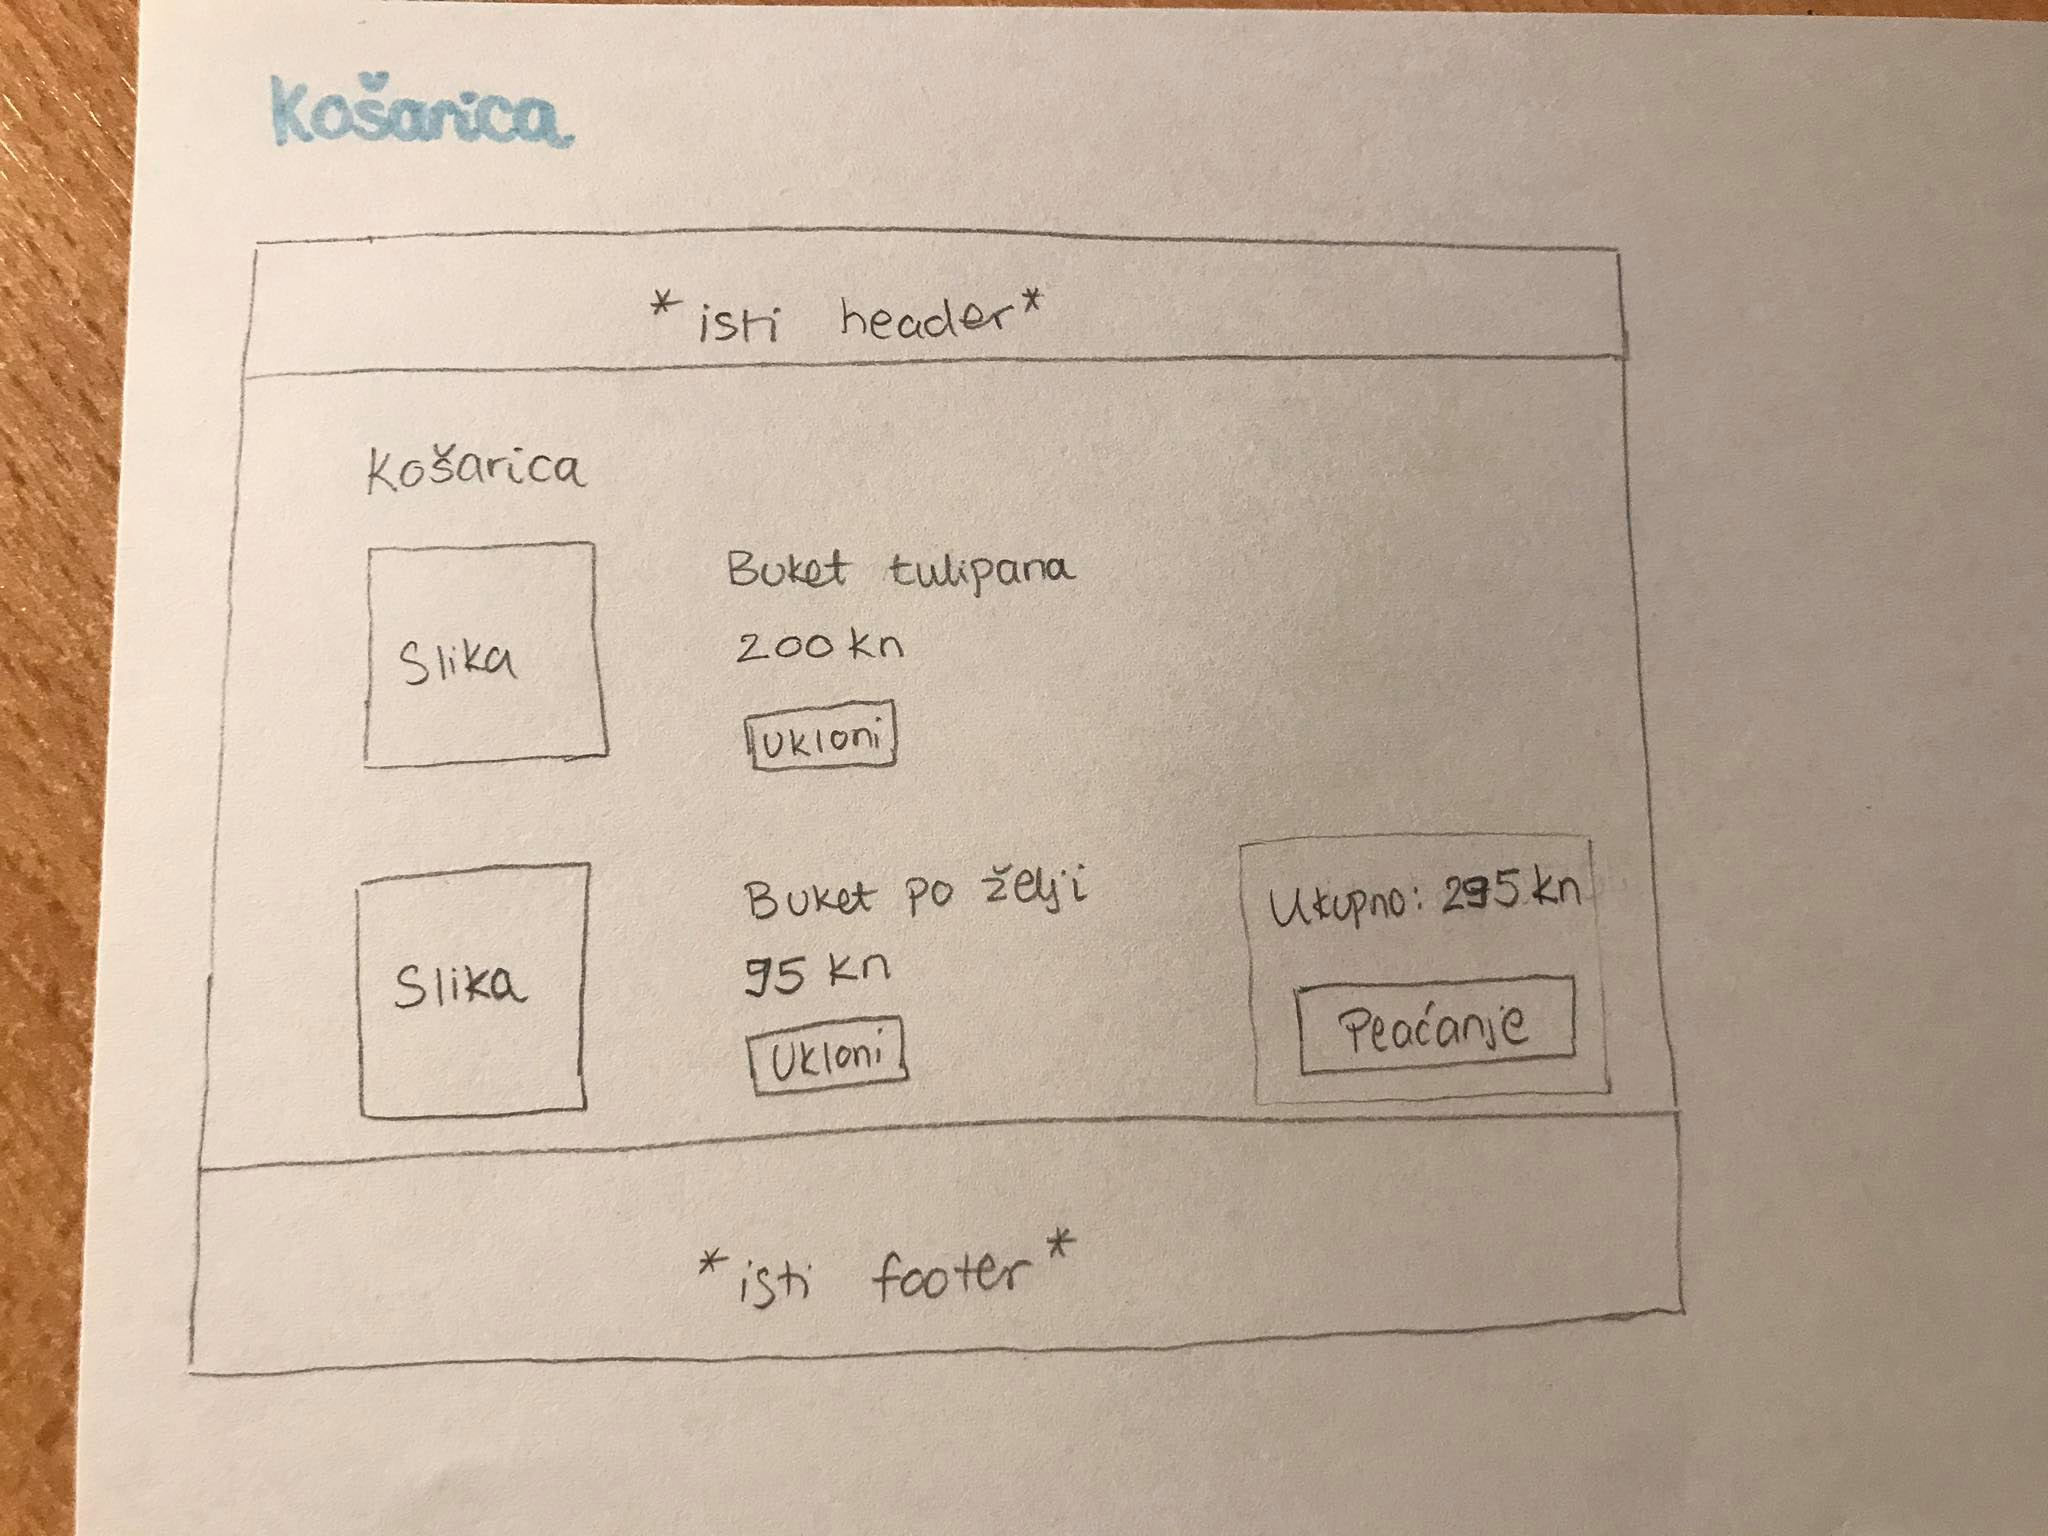 Košarica
*isti header*
Košarica
Slika
Buket tulipana
200 kn
Ukloni
Slika
Buket po želji
95 kn
Ukloni
Ukupno: 295 kn
Plaćanje
*isti footer*